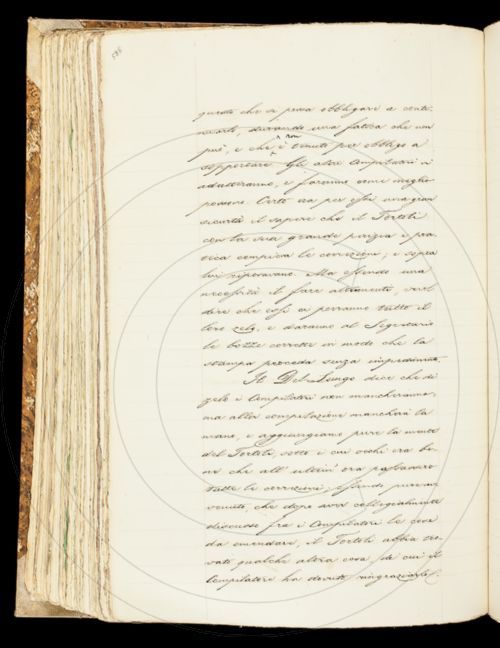 598
questo che si possa obbligare a conti-
nuarlo, durando una fatica che non
può, e che non è tenuto per obbligo a
sopportare. Gli altri Compilatori si
adatteranno, e faranno come meglio
possono. Certo era per essi una gran
sicurtà il sapere che il Tortoli
con la sua grande perizia e pra-
tica compiva le correzioni; e sopra
lui riposavano. Ma essendo una
necessità il fare altrimenti, vuol
dire che essi ci porranno tutto il
loro zelo, e daranno al Segretario
le bozze corrette in modo che la
stampa proceda senza impedimento.
Il Del-Lungo dice che di
zelo i Compilatori non mancheranno;
ma alla compilazione mancherà la
mano, e aggiungiamo pure la mente
del Tortoli, sotto i cui occhi era be-
ne che all'ultim'ora passassero
tutte le correzioni; essendo pure av-
venuto, che dopo aver collegialmente
discusso fra i Compilatori le cose
da emendare, il Tortoli abbia tro-
vato qualche altra cosa di cui il
Compilatore ha dovuto ringraziarlo.